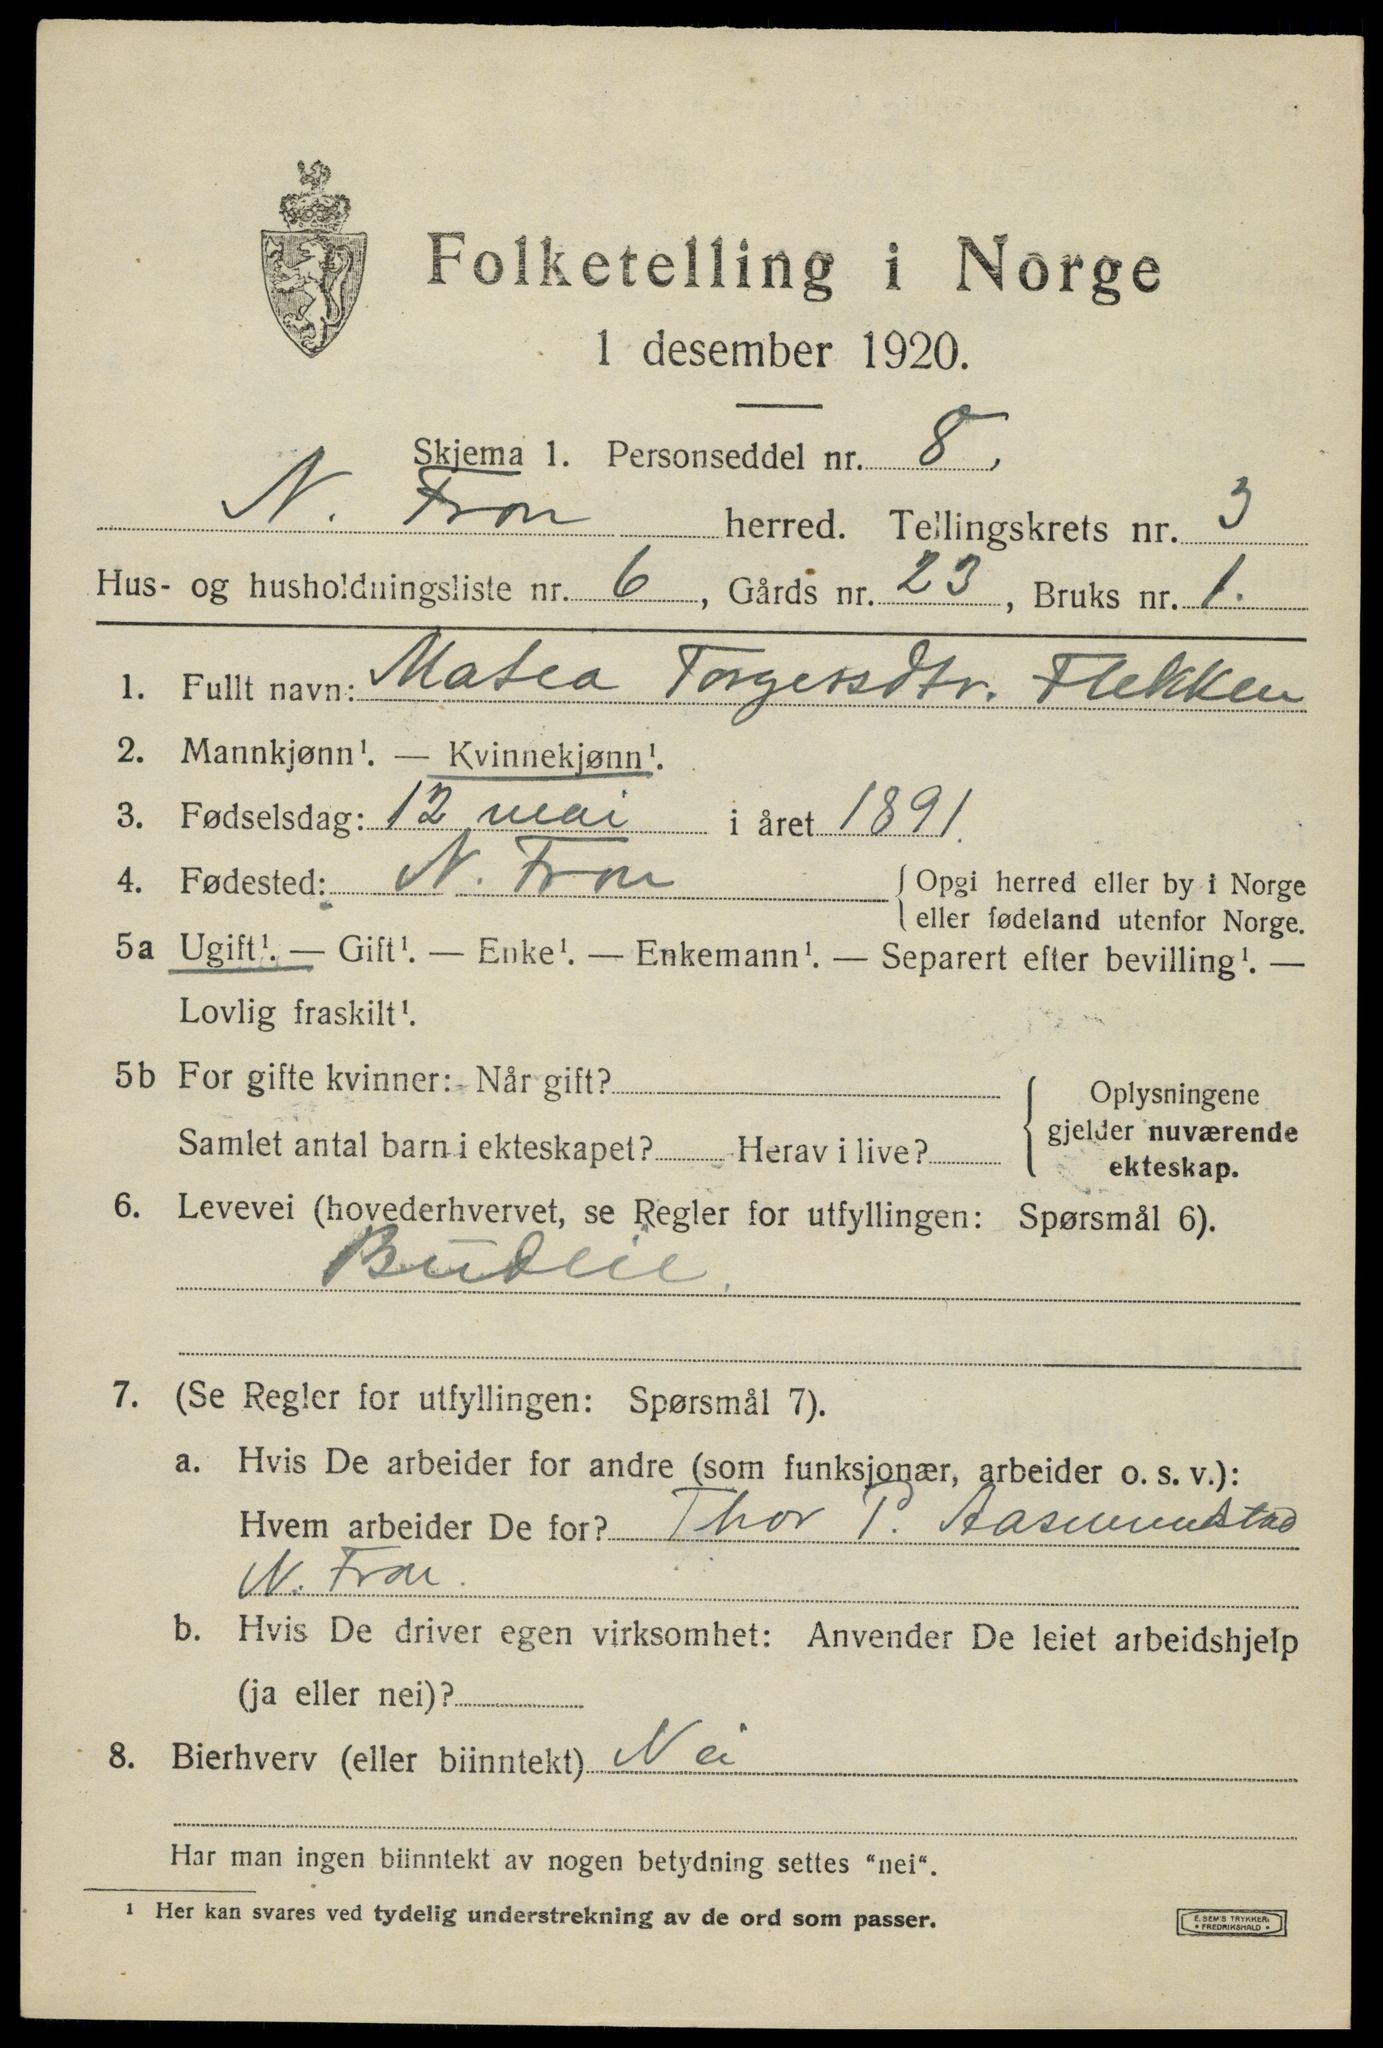 Folketelling i Norge
1 desember 1920.
Skjema 1. Personseddel nr. 8.
N. Fron herred. Tellingskrets nr. 3
Hus- og husholdningsliste nr. 6, Gårds nr. 23, Bruks nr. 1.
1. Fullt navn: Matea Torgersdtr. Flekken
2. Mannkjønn¹. — Kvinnekjønn¹.
3. Fødselsdag: 12 mai i året 1891.
4. Fødested: N. Fron { Opgi herred eller by i Norge
eller fødeland utenfor Norge.
5a Ugift¹. — Gift¹. — Enke¹. — Enkemann¹. — Separert efter bevilling¹. —
Lovlig fraskilt¹.
5b For gifte kvinner: Når gift? { Oplysningene
gjelder nuværende
Samlet antal barn i ekteskapet? Herav i live? ekteskap.
6. Levevei (hovederhvervet, se Regler for utfyllingen: Spørsmål 6).
Budeie.
7. (Se Regler for utfyllingen: Spørsmål 7).
a. Hvis De arbeider for andre (som funksjonær, arbeider o. s. v.):
Hvem arbeider De for? Thor P. Aasmundstad
N. Fron.
b. Hvis De driver egen virksomhet: Anvender De leiet arbeidshjelp
(ja eller nei)?
8. Bierhverv (eller biinntekt) Nei
Har man ingen biinntekt av nogen betydning settes "nei".
¹ Her kan svares ved tydelig understrekning av de ord som passer.
E. SEM'S TRYKKERI
• FREDRIKSHALD •